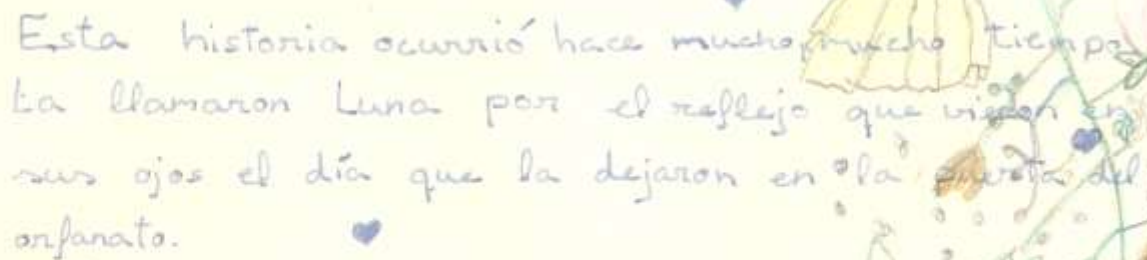 Esta historia ocurrió hace mucho, mucho tiempo.
La llamaron Luna por el reflejo que vieron en
sus ojos el día que la dejaron en la puerta del
orfanato.